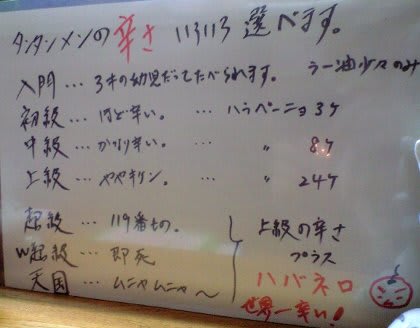 タンタンメンの辛さ いろいろ選べます。
入門 … 3才の幼児だってたべられます。 ラー油少々のみ
初級 … ほど辛い。 … ハラペーニョ 3ケ
中級 … かなり辛い。 … 〃 8ケ
上級 … ややキケン。 … 〃 24ケ
超級 … 119番もの。
W超級 … 即死
天国 … ムニャムニャ〜
上級の辛さ
プラス
ハバネロ
世界一辛い!